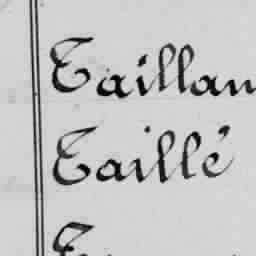 Taillan
Taillé